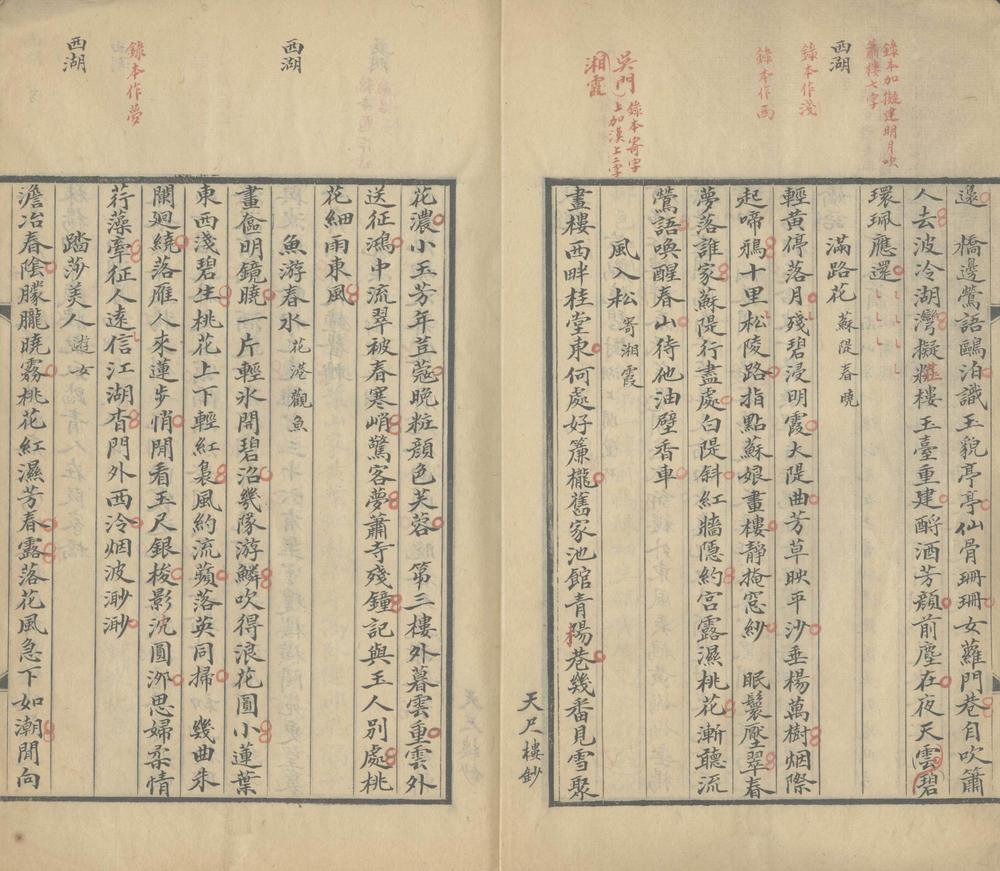 錄本加擬建明月吹
簫樓七字
西湖
錄本作淺
錄本作西
吳門
錄本寄字
上加漢上二字
湘霞
邊　橋邊鶯語鷗泊識玉貌亭亭仙骨珊珊女蘿門巷自吹簫
人去波冷湖灣擬糚樓玉臺重建酹酒芳顏前塵在夜天雲碧
環珮應還
滿路花 蘇隄春曉
輕黃停落月殘碧浸明霞大隄曲芳草映平沙垂楊萬樹烟際
起啼鴉十里松陵路指點蘇娘畫樓靜掩窓紗　眠鬟壓翠春
夢落誰家蘇隄行盡處白隄斜紅牆隱約宮露濕桃花漸聽流
鶯語喚醒春山待他油壁香車
風入松 寄湘霞
畫樓西畔桂堂東何處好簾櫳舊家池館青楊巷幾番見雪聚
天尺樓鈔
西湖
錄本作夢
西湖
花濃小玉芳年荳蔻晚粧顏色芙蓉　第三樓外暮雲重雲外
送征鴻中流翠被春寒峭驚客夢蕭寺殘鐘記與玉人別處桃
花細雨東風
魚游春水 花港觀魚
畫奩明鏡曉一片輕氷開碧沼幾隊游鱗吹得浪花圓小蓮葉
東西淺碧生桃花上下輕紅裊風約流蘋落英同掃　幾曲朱
闌廻繞落雁人來蓮步悄閒看玉尺銀梭影沉圓泖思婦柔情
荇藻牽征人遠信江湖杳門外西泠烟波渺渺
踏莎美人 遊女
澹冶春陰朦朧曉霧桃花紅濕芳春露落花風急下如潮閒向